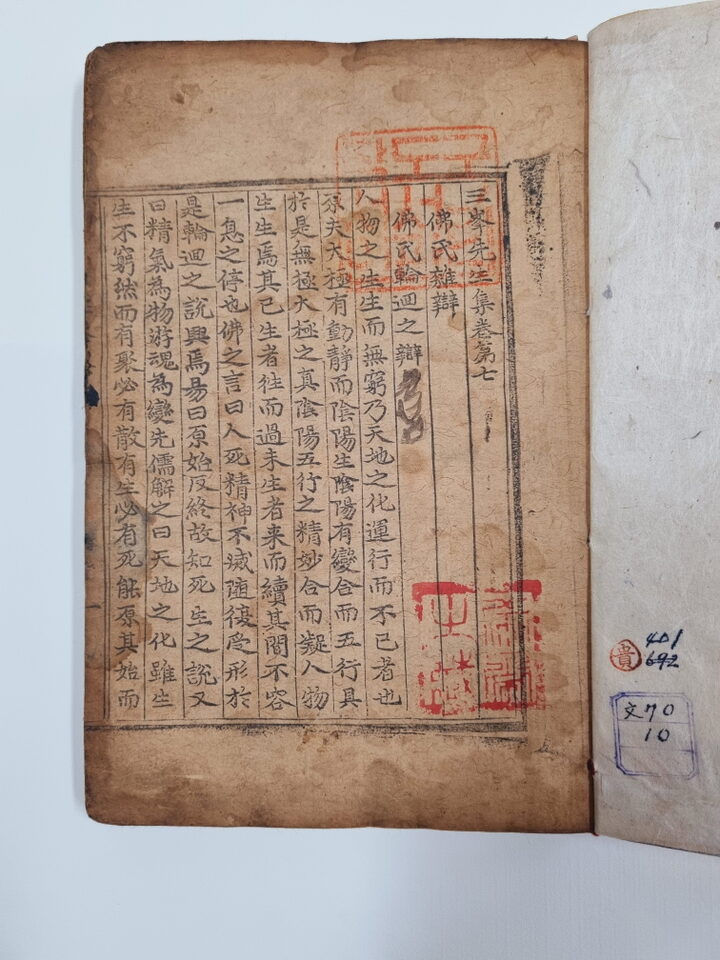 三峯先生集卷第七
佛氏雜辯
佛氏輪迴之辯
人物之生生而無窮乃天地之化運行而不已者也
原夫大極有動靜而陰陽生陰陽有變合而五行具
於是無極大極之真陰陽五行之精妙合而凝人物
生生焉其已生者徃而過未生者来而續其間不容
一息之停也佛之言曰人死精神不滅随復受形於
是輪迴之說興焉易曰原始反終故知死生之說又
曰精氣為物游魂為變先儒解之曰天地之化雖生
生不窮然而有聚必有散有生必有死能原其始而
貴
401
692
文70
10